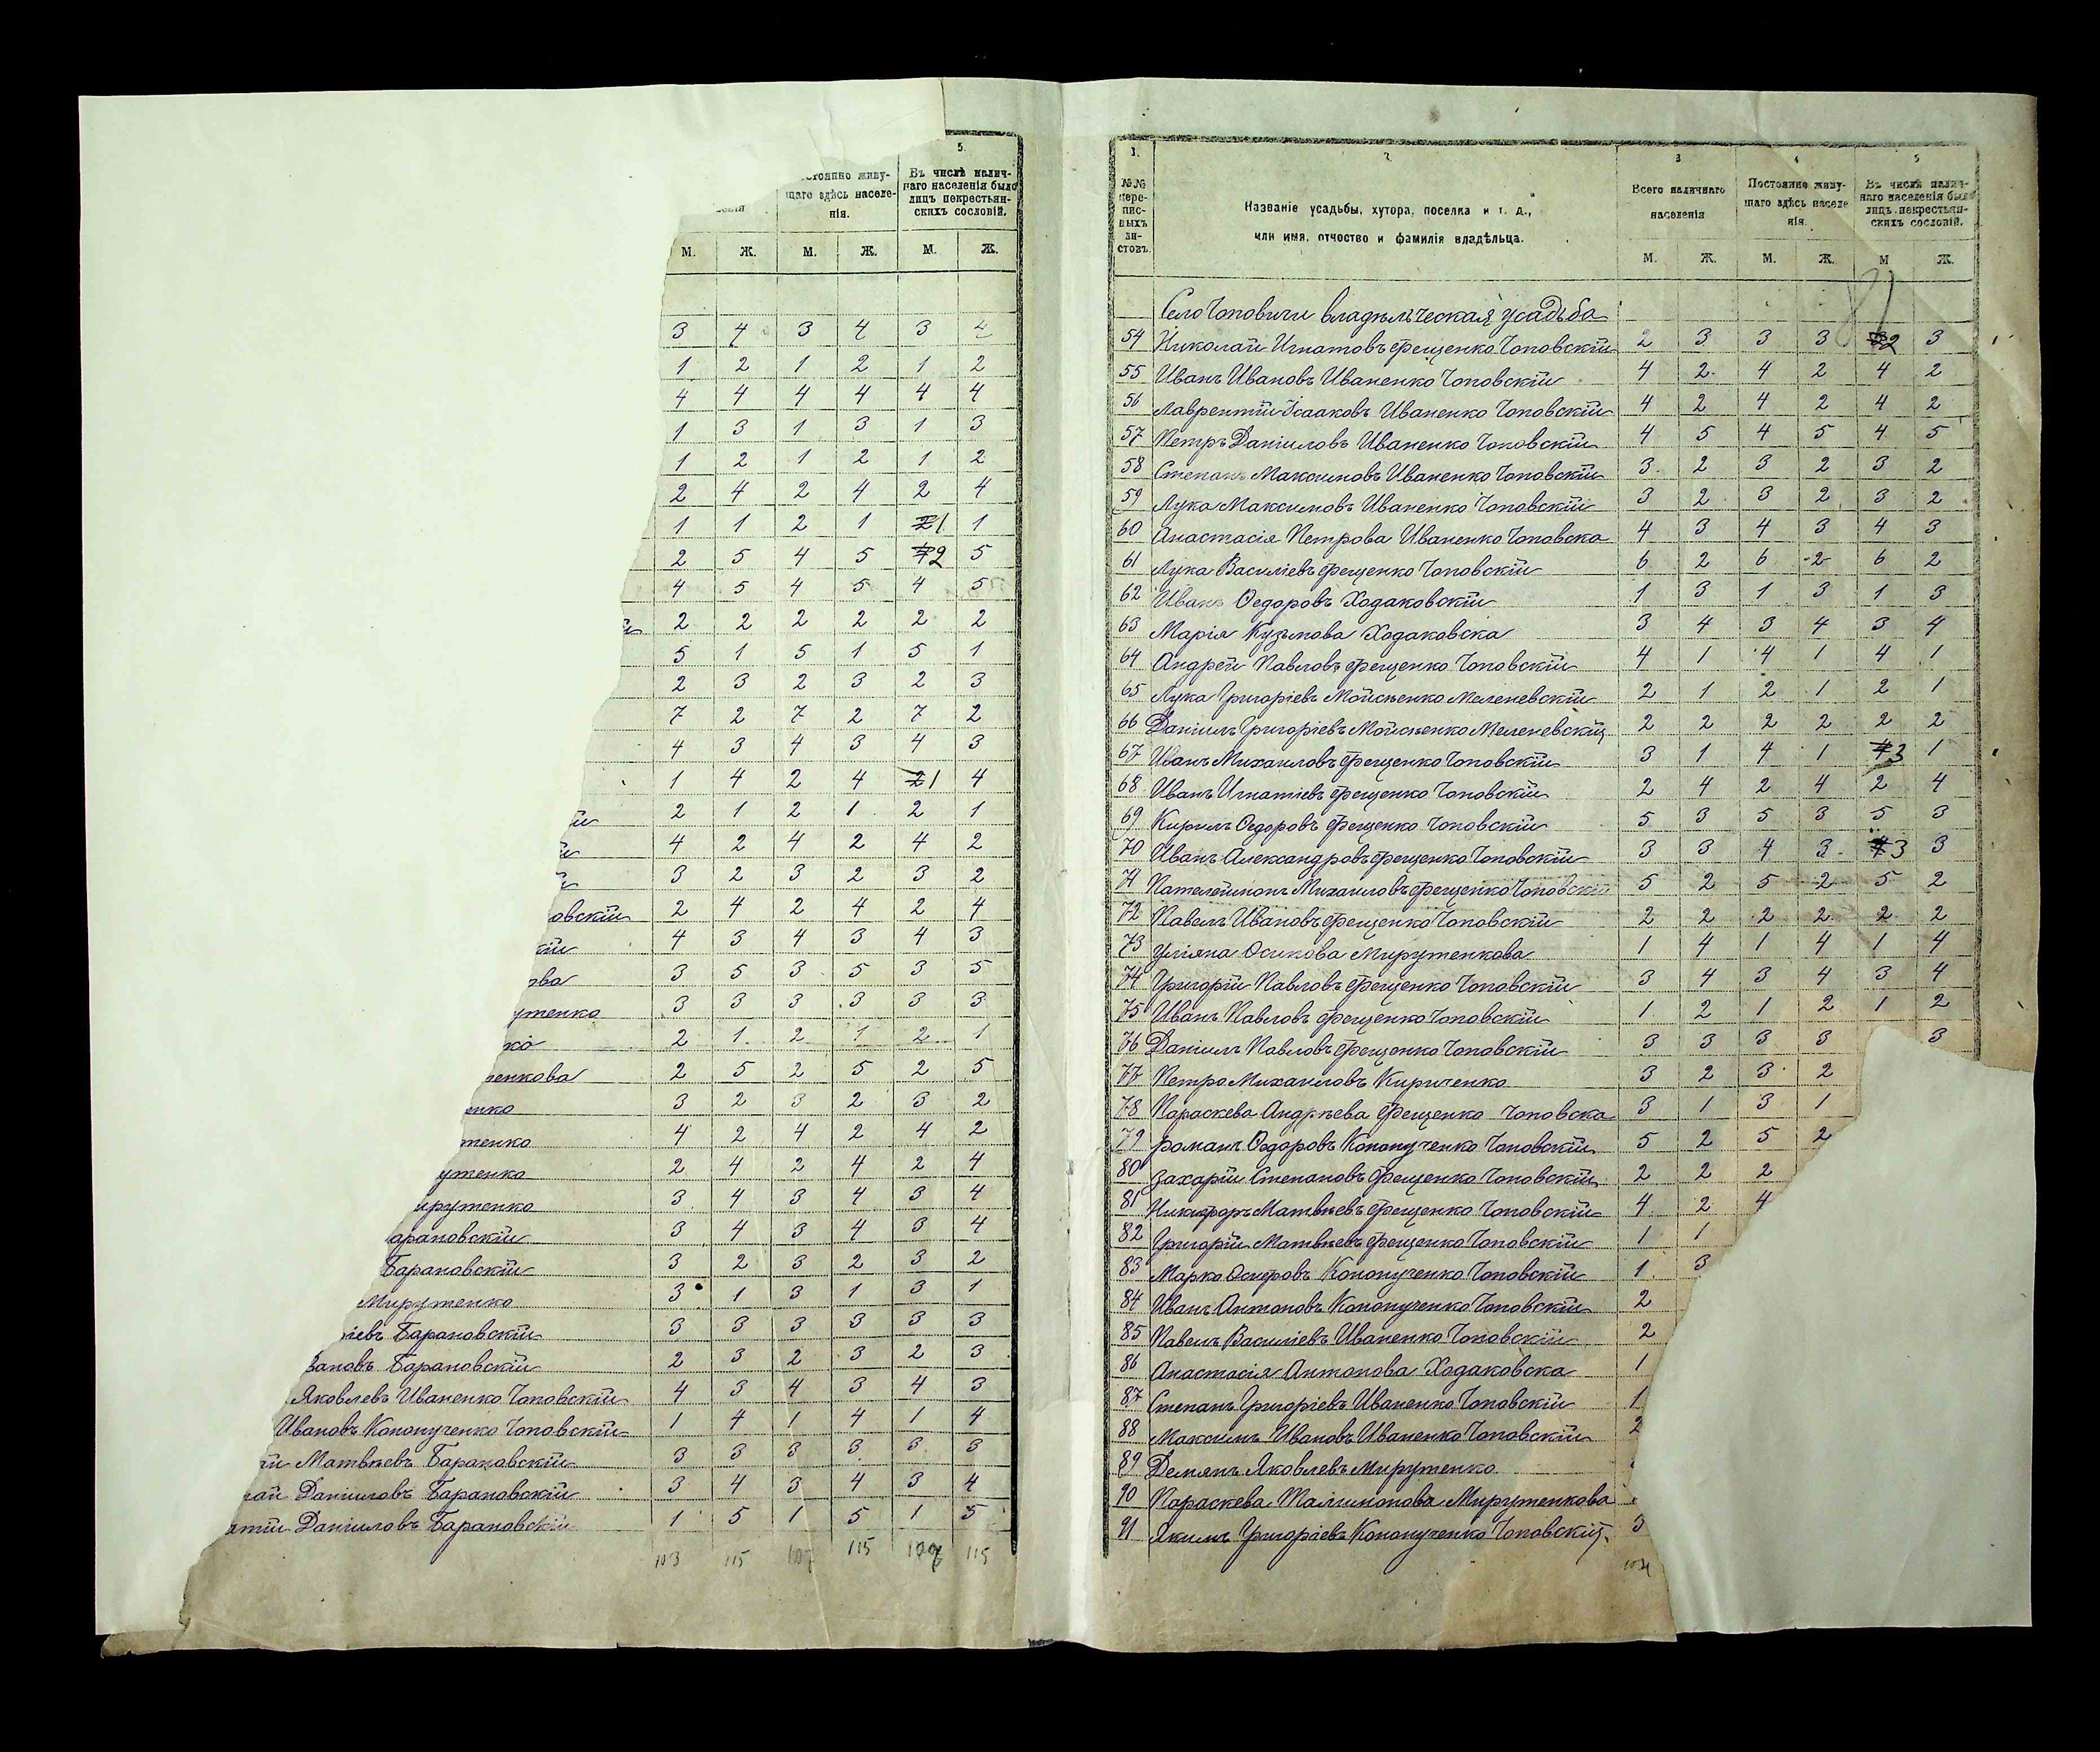 5.
стоянно живу- Въ числѣ налич-
щаго здѣсь населе- наго населенія было
нія. лицъ некрестьян-
скихъ сословій.
М. Ж. М. Ж. М. Ж.
3 4 3 4 3 4
1 2 1 2 1 2
4 4 4 4 4 4
1 3 1 3 1 3
1 2 1 2 1 2
2 4 2 4 2 4
1 1 2 1 2 1 1
2 5 4 5 4 2 5
4 5 4 5 4 5
й 2 2 2 2 2 2
5 1 5 1 5 1
2 3 2 3 2 3
7 2 7 2 7 2
4 3 4 3 4 3
1 4 2 4 2 1 4
ій 2 1 2 1 2 1
й 4 2 4 2 4 2
й 3 2 3 2 3 2
овскій 2 4 2 4 2 4
кій 4 3 4 3 4 3
ова 3 5 3 5 3 5
утенко 3 3 3 3 3 3
ко 2 1 2 1 2 1
енкова 2 5 2 5 2 5
енко 3 2 3 2 3 2
тенко 4 2 4 2 4 2
утенко 2 4 2 4 2 4
ирутенко 3 4 3 4 3 4
арановскій 3 4 3 4 3 4
Барановскій 3 2 3 2 3 2
Мирутенко 3 1 3 1 3 1
ріевъ Барановскій 3 3 3 3 3 3
вановъ Барановскій 2 3 2 3 2 3
Яковлевъ Иваненко Чоповскій 4 3 4 3 4 3
Ивановъ Конопученко Чоповскій 1 4 1 4 1 4
ій Матвѣевъ Барановскій 3 3 3 3 3 3
лай Даніиловъ Барановскій 3 4 3 4 3 4
атій Даніиловъ Барановскій 1 5 1 5 1 5
103 115 107 115 115
1. 2 3 4 5
№№ пере-пис-ныхъ ли-стовъ.
Названіе усадьбы, хутора, поселка и т. д.,
или имя, отчество и фамилія владѣльца.
Всего наличнаго населенія
Постоянно живу-щаго здѣсь населе-нія.
Въ числѣ налич-наго населенія было лицъ некрестьян-скихъ сословій.
М. Ж. М. Ж. М Ж.
Село Чоповичи владѣльческая усадьба
54 Николай Игнатовъ Фещенко Чоповскій 2 3 3 3 3 2 3
55 Иванъ Ивановъ Иваненко Чоповскій 4 2 4 2 4 2
56 Лаврентій Ісааковъ Иваненко Чоповскій 4 2 4 2 4 2
57 Петръ Даніиловъ Иваненко Чоповскій 4 5 4 5 4 5
58 Степанъ Максимовъ Иваненко Чоповскій 3 2 3 2 3 2
59 Лука Максимовъ Иваненко Чоповскій 3 2 3 2 3 2
60 Анастасія Петрова Иваненко Чоповска 4 3 4 3 4 3
61 Лука Василіевъ Фещенко Чоповскій 6 2 6 2 6 2
62 Иванъ Ѳедоровъ Ходаковскій 1 3 1 3 1 3
63 Марія Кузьмова Ходаковска 3 4 3 4 3 4
64 Андрей Павловъ Фещенко Чоповскій 4 1 4 1 4 1
65 Лука Григоріевъ Мойсѣенко Меленевскій 2 1 2 1 2 1
66 Даніилъ Григоріевъ Мойсѣенко Меленевскій 2 2 2 2 2 2
67 Иванъ Михаиловъ Фещенко Чоповскій 3 1 4 1 4 3 1
68 Иванъ Игнатіевъ Фещенко Чоповскій 2 4 2 4 2 4
69 Кирилъ Ѳедоровъ Фещенко Чоповскій 5 3 5 3 5 3
70 Иванъ Александровъ Фещенко Чоповскій 3 3 4 3 4 3 3
71 Пателеймонъ Михаиловъ Фещенко Чоповскій 5 2 5 2 5 2
72 Павелъ Ивановъ Фещенко Чоповскій 2 2 2 2 2 2
73 Уліяна Осипова Мирутенкова 1 4 1 4 1 4
74 Григорій Павловъ Фещенко Чоповскій 3 4 3 4 3 4
75 Иванъ Павловъ Фещенко Чоповскій 1 2 1 2 1 2
76 Даніилъ Павловъ Фещенко Чоповскій 3 3 3 3 3
77 Петро Михаиловъ Кириченко 3 2 3 2
78 Параскева Андрѣева Фещенко Чоповска 3 1 3 1
79 Романъ Ѳедоровъ Конопученко Чоповскій 5 2 5 2
80 Захарій Степановъ Фещенко Чоповскій 2 2 2
81 Никифоръ Матвѣевъ Фещенко Чоповскій 4 2 4
82 Григорій Матвѣевъ Фещенко Чоповскій 1 1
83 Марко Осифовъ Конопученко Чоповскій 1 3
84 Иванъ Антоновъ Конопученко Чоповскій 2
85 Павелъ Василіевъ Иваненко Чоповскій 2
86 Анастасія Антонова Ходаковска 1
87 Степанъ Григоріевъ Иваненко Чоповскій 1
88 Максимъ Ивановъ Иваненко Чоповскій 2
89 Демянъ Яковлевъ Мирутенко
90 Параскева Талимонова Мирутенкова
91 Якимъ Григоріевъ Конопученко Чоповскій 3